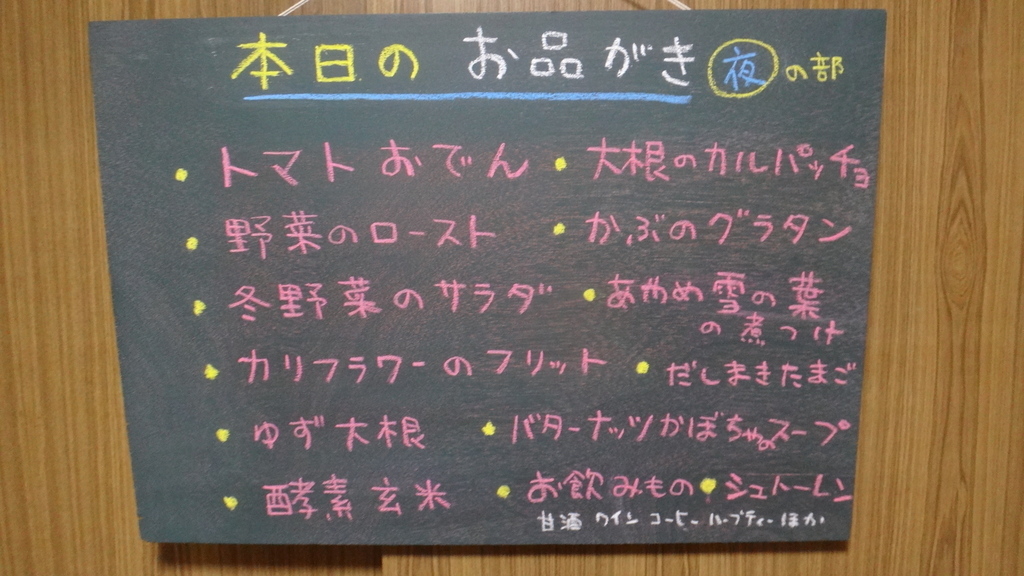 本日の お品がき 夜の部
・トマトおでん ・大根のカルパッチョ
・野菜のロースト ・かぶのグラタン
・冬野菜のサラダ ・あやめ雪の葉
の煮つけ
・カリフラワーのフリット ・だしまきたまご
・ゆず大根 ・バターナッツかぼちゃのスープ
・酵素玄米 ・お飲みもの ・シュトーレン
甘酒 ワイン コーヒー ハーブティー ほか